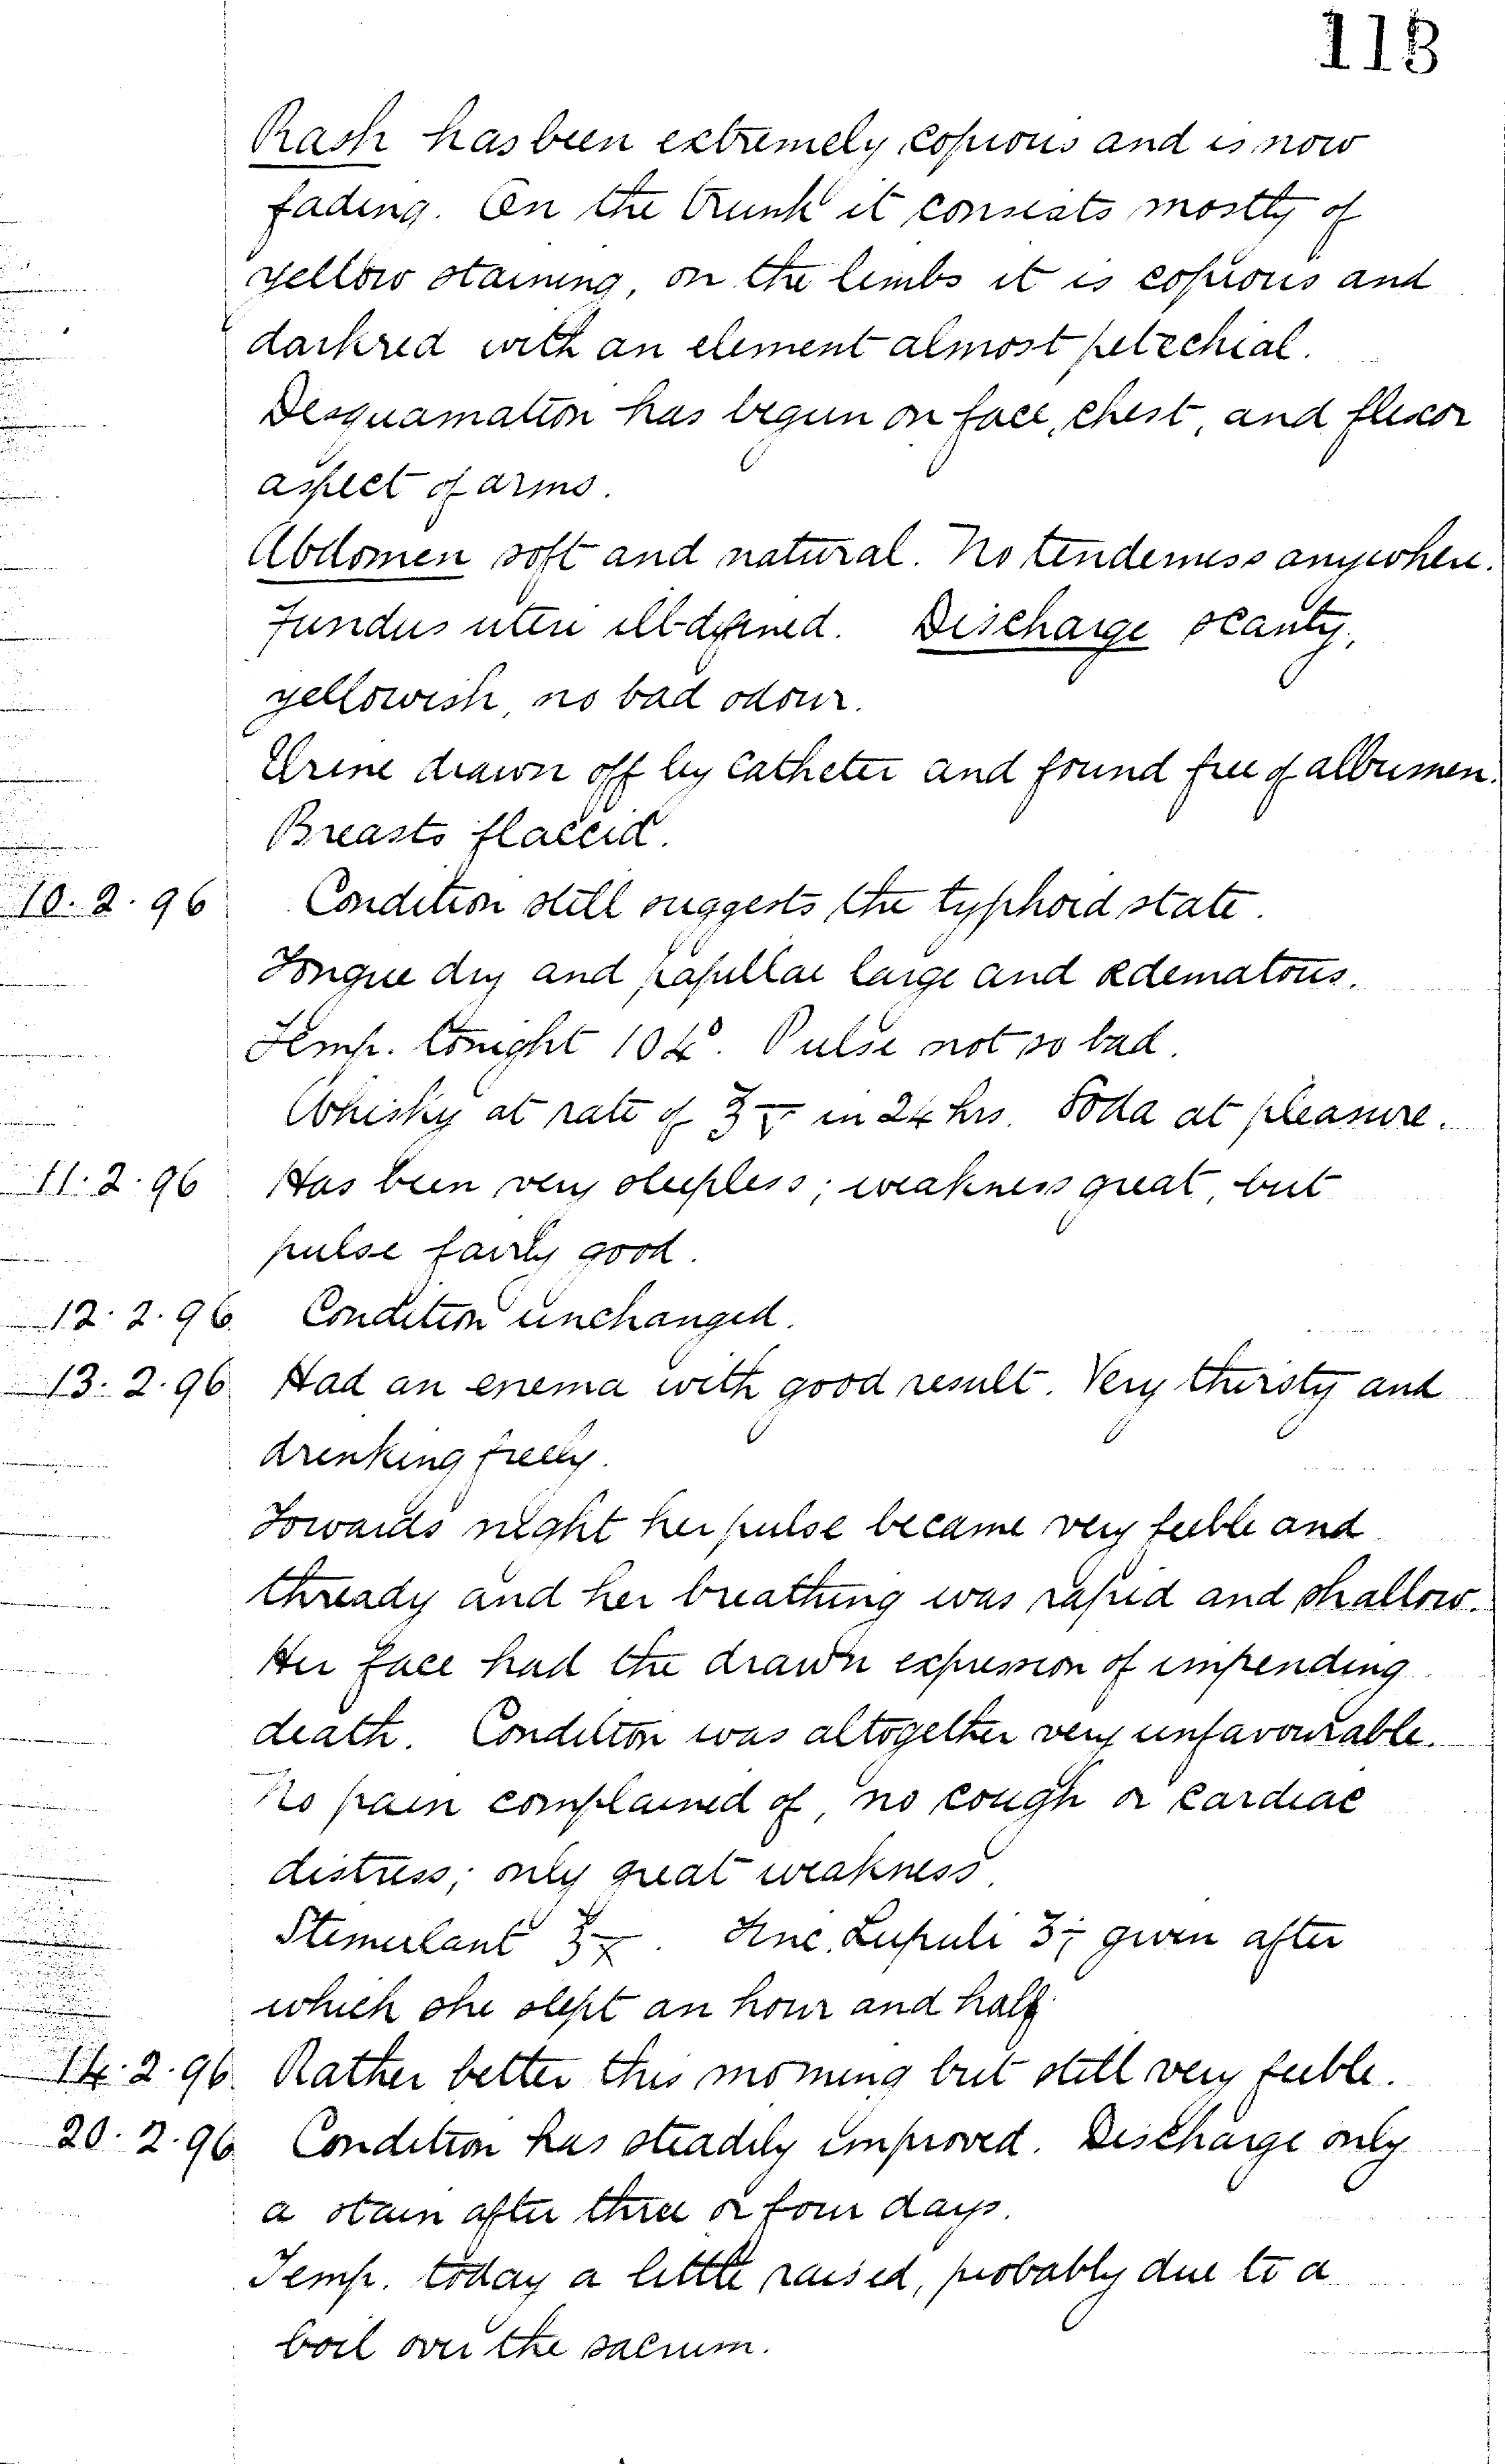 118
Rash has been extremely copious and is now
fading. On the trunk it consists mostly of
yellow staining, on the limbs it is copious and
dark red with an element almost petechial.
Desquamation has begun on face, chest, and flexor
aspect of arms.
Abdomen soft and natural. No tenderness anywhere.
Fundus uteri ill-defined. Discharge scanty,
yellowish, no bad odour.
Urine drawn off by catheter and found free of albumen.
Breasts flaccid.
10.2.96 Condition still suggests the typhoid state.
Tongue dry and papillae large and œdematous.
Temp. tonight 104°. Pulse not so bad.
Whisky at rate of ℥ in 24 hrs. Soda at pleasure.
11.2.96 Has been very sleepless; weakness great, but
pulse fairly good.
12.2.96. Condition unchanged.
13.2.96. Had an enema with good result. Very thirsty and
drinking freely.
Towards night her pulse became very feeble and
thready and her breathing was rapid and shallow.
Her face had the drawn expression of impending
death. Condition was altogether very unfavourable.
No pain complained of, no cough or cardiac
distress; only great weakness.
Stimulant ℥x. Tinc. Lupuli ʒi given after
which she slept an hour and half.
14.2.96. Rather better this morning but still very feeble.
20.2.96. Condition has steadily improved. Discharge only
a stain after three or four days.
Temp. today a little raised, probably due to a
boil over the sacrum.